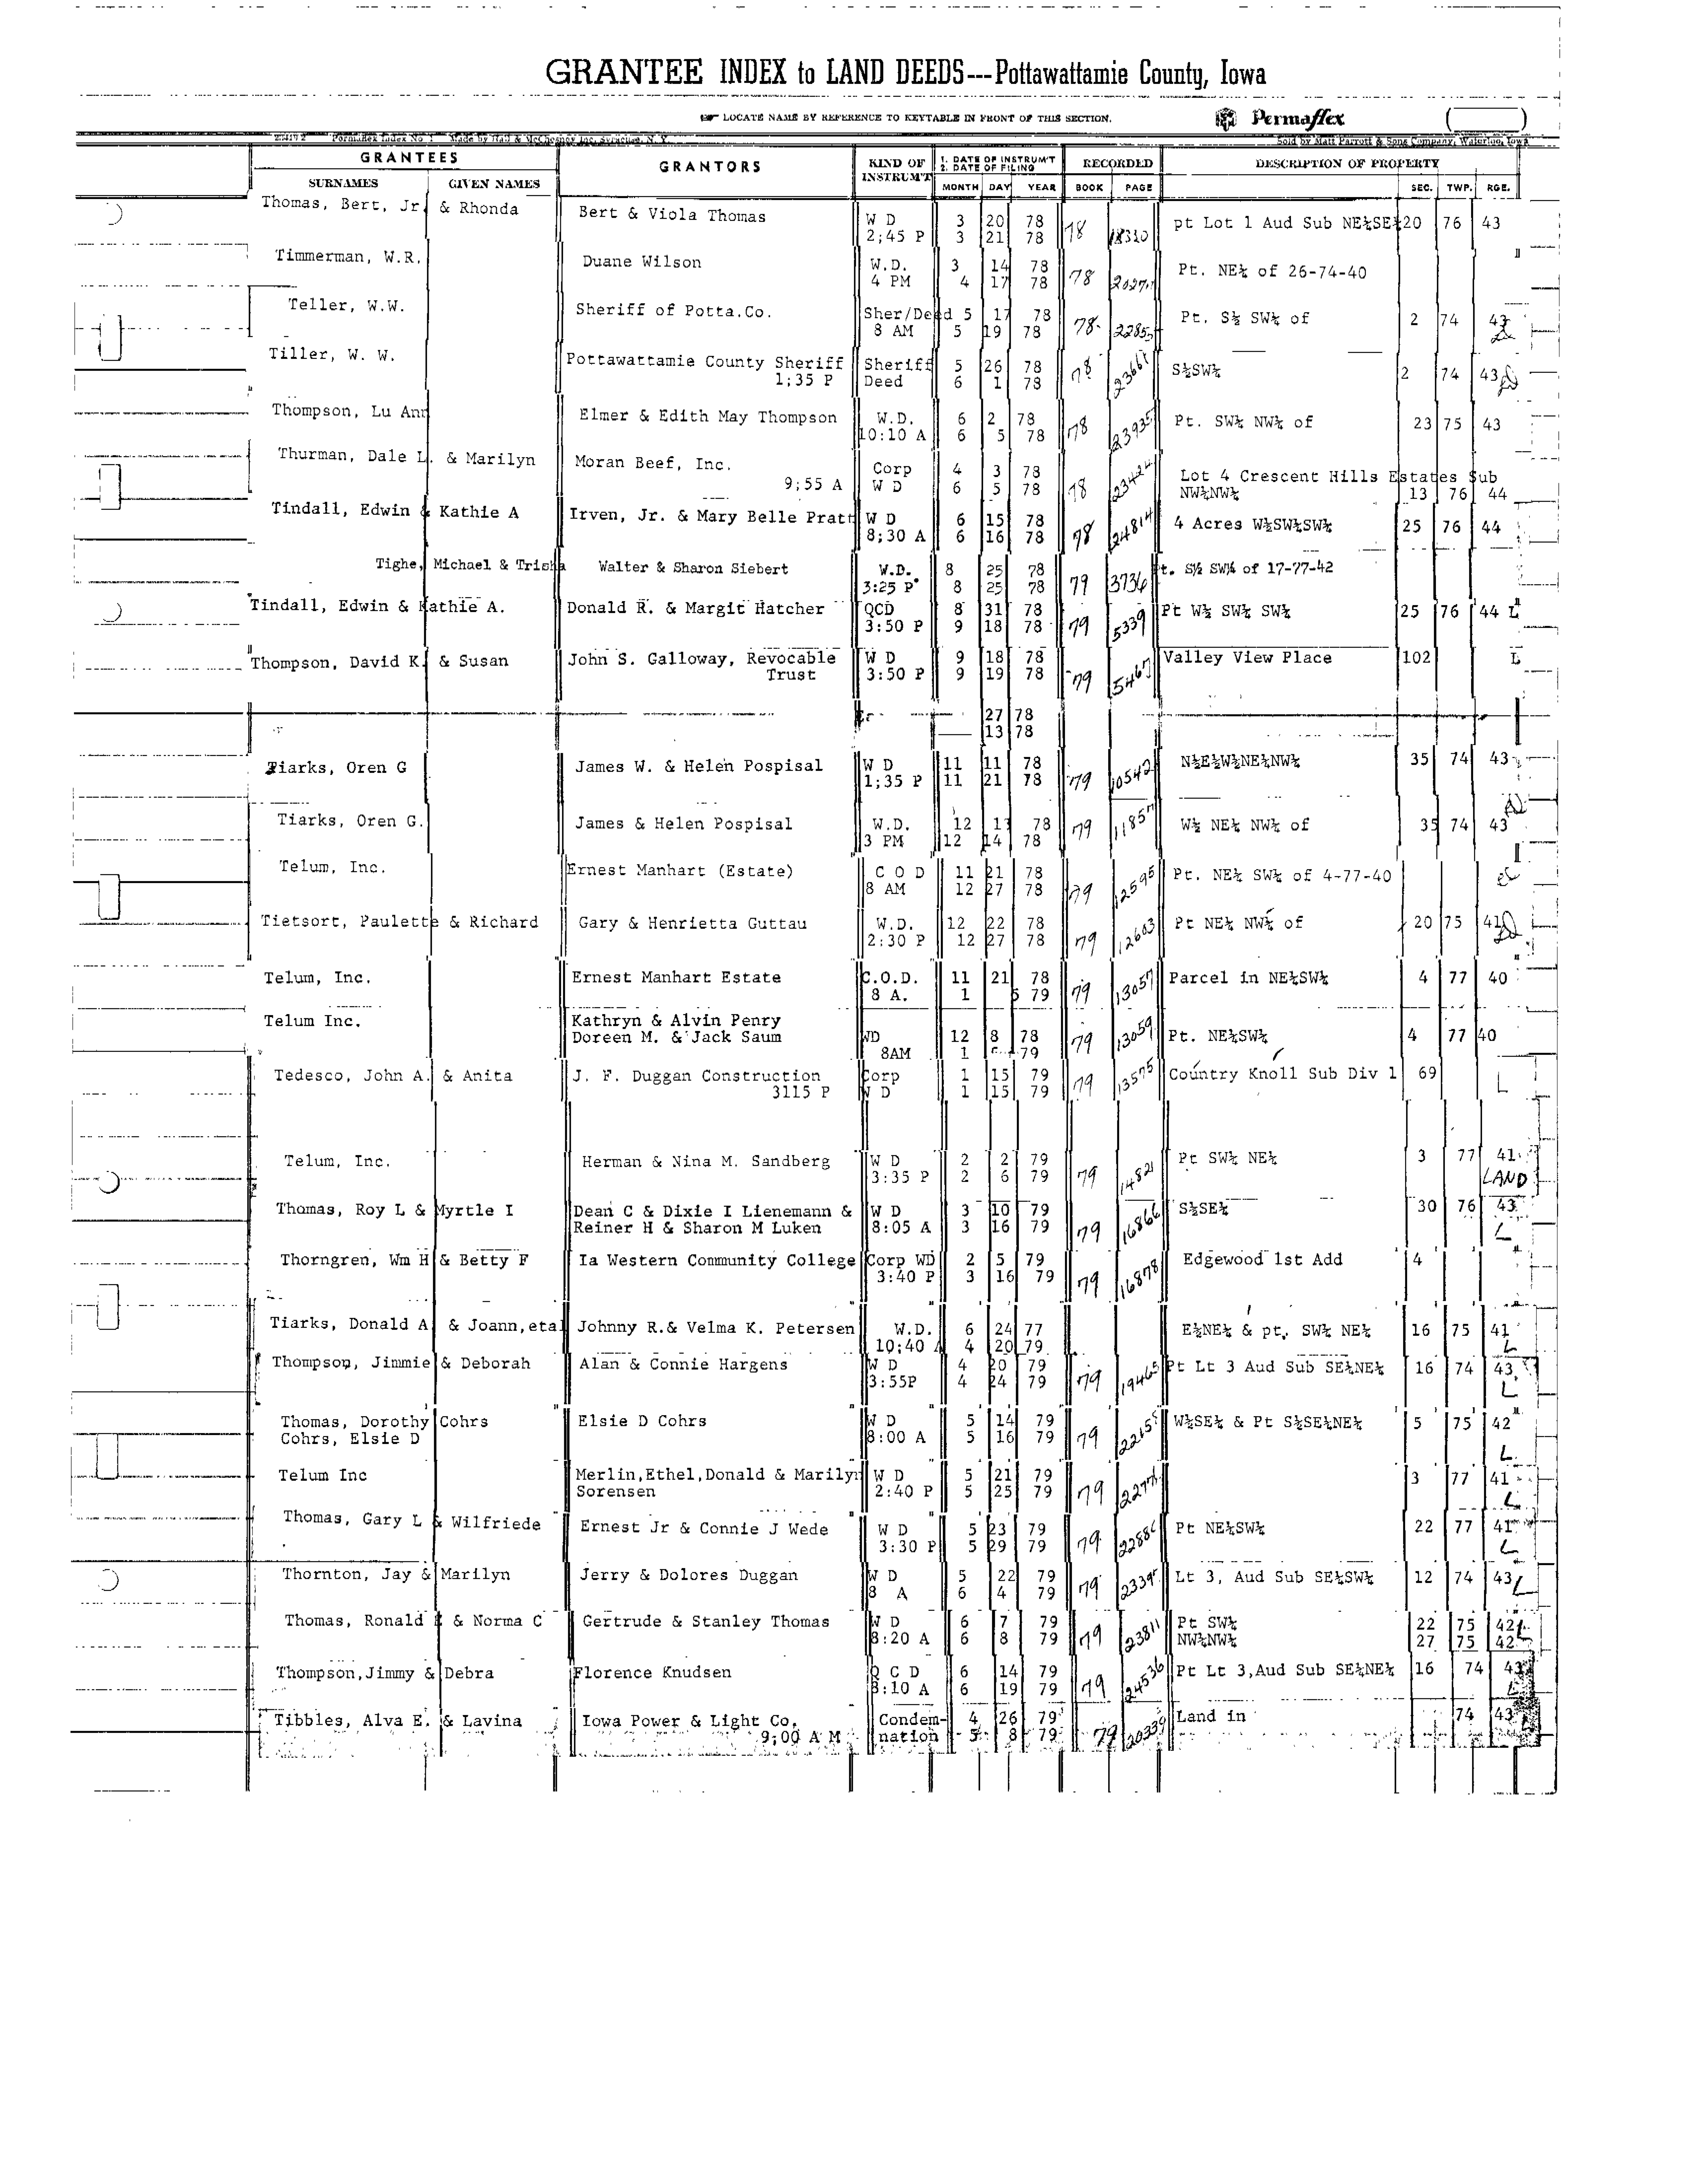 GRANTEE INDEX to LAND DEEDS---Pottawattamie County, Iowa
LOCATE NAME BY REFERENCE TO KEYTABLE IN FRONT OF THIS SECTION. Permaflex
Made by Hall & McChesney Inc. Syracuse, N. Y. Sold by Matt Parrott & Sons Company, Waterloo, Iowa
GRANTEES GRANTORS KIND OF INSTRUM'T 1. DATE OF INSTRUM'T 2. DATE OF FILING RECORDED DESCRIPTION OF PROPERTY
SURNAMES GIVEN NAMES MONTH DAY YEAR BOOK PAGE SEC. TWP. RGE.
Thomas, Bert, Jr & Rhonda Bert & Viola Thomas W D 3 20 78 78 18310 pt Lot 1 Aud Sub NE¼SE¼ 20 76 43
2;45 P 3 21 78
Timmerman, W.R. Duane Wilson W.D. 3 14 78 78 Pt. NE¼ of 26-74-40
4 PM 4 17 78
Teller, W.W. Sheriff of Potta.Co. Sher/Deed 5 17 78 78 Pt. S½ SW¼ of 2 74 43
8 AM 5 19 78
Tiller, W. W. Pottawattamie County Sheriff Sheriff 5 26 78 78 S½SW¼ 2 74 43
1;35 P Deed 6 1 78
Thompson, Lu Ann Elmer & Edith May Thompson W.D. 6 2 78 78 23935 Pt. SW¼ NW¼ of 23 75 43
10:10 A 6 5 78
Thurman, Dale L. & Marilyn Moran Beef, Inc. Corp 4 3 78 78 Lot 4 Crescent Hills Estates Sub
9;55 A W D 6 5 78 NW¼NW¼ 13 76 44
Tindall, Edwin & Kathie A Irven, Jr. & Mary Belle Pratt W D 6 15 78 78 24814 4 Acres W½SW¼SW¼ 25 76 44
8;30 A 6 16 78
Tighe, Michael & Trisha Walter & Sharon Siebert W.D. 8 25 78 79 3736 t. S½ SW¼ of 17-77-42
3:25 P 8 25 78
Tindall, Edwin & Kathie A. Donald R. & Margit Hatcher QCD 8 31 78 79 5339 Pt W½ SW¼ SW¼ 25 76 44 L
3:50 P 9 18 78
Thompson, David K. & Susan John S. Galloway, Revocable W D 9 18 78 79 5467 Valley View Place 102 L
Trust 3:50 P 9 19 78
27 78
13 78
Tiarks, Oren G James W. & Helen Pospisal W D 11 11 78 79 10542 N½E½W½NE¼NW¼ 35 74 43
1;35 P 11 21 78
Tiarks, Oren G. James & Helen Pospisal W.D. 12 13 78 79 11857 W½ NE¼ NW¼ of 35 74 43
3 PM 12 14 78
Telum, Inc. Ernest Manhart (Estate) C O D 11 21 78 79 12595 Pt. NE¼ SW¼ of 4-77-40
8 AM 12 27 78
Tietsort, Paulette & Richard Gary & Henrietta Guttau W.D. 12 22 78 79 12603 Pt NE¼ NW¼ of 20 75 41
2:30 P 12 27 78
Telum, Inc. Ernest Manhart Estate C.O.D. 11 21 78 79 13057 Parcel in NE¼SW¼ 4 77 40
8 A. 1 5 79
Telum Inc. Kathryn & Alvin Penry
Doreen M. & Jack Saum WD 12 8 78 79 13059 Pt. NE¼SW¼ 4 77 40
8AM 1 79
Tedesco, John A. & Anita J. F. Duggan Construction Corp 1 15 79 79 13575 Country Knoll Sub Div 1 69 L
3115 P W D 1 15 79
Telum, Inc. Herman & Nina M. Sandberg W D 2 2 79 79 14821 Pt SW¼ NE¼ 3 77 41
3:35 P 2 6 79 LAND
Thomas, Roy L & Myrtle I Dean C & Dixie I Lienemann & W D 3 10 79 79 16866 S½SE¼ 30 76 43
Reiner H & Sharon M Luken 8:05 A 3 16 79 L
Thorngren, Wm H & Betty F Ia Western Community College Corp WD 2 5 79 79 16878 Edgewood 1st Add 4
3:40 P 3 16 79
Tiarks, Donald A & Joann,etal Johnny R.& Velma K. Petersen W.D. 6 24 77 E½NE¼ & pt, SW¼ NE¼ 16 75 41
10;40 A 4 20 79 L
Thompson, Jimmie & Deborah Alan & Connie Hargens W D 4 20 79 79 19465 Pt Lt 3 Aud Sub SE¼NE¼ 16 74 43
3:55P 4 24 79 L
Thomas, Dorothy Cohrs Elsie D Cohrs W D 5 14 79 79 W½SE¼ & Pt S½SE¼NE¼ 5 75 42
Cohrs, Elsie D 8:00 A 5 16 79 L
Telum Inc Merlin,Ethel,Donald & Marilyn W D 5 21 79 79 3 77 41
Sorensen 2:40 P 5 25 79 L
Thomas, Gary L & Wilfriede Ernest Jr & Connie J Wede W D 5 23 79 79 Pt NE¼SW¼ 22 77 41
3:30 P 5 29 79 L
Thornton, Jay & Marilyn Jerry & Dolores Duggan W D 5 22 79 79 Lt 3, Aud Sub SE¼SW¼ 12 74 43 L
8 A 6 4 79
Thomas, Ronald & Norma C Gertrude & Stanley Thomas W D 6 7 79 79 23811 Pt SW¼ 22 75 42
8:20 A 6 8 79 NW¼NW¼ 27 75 42 L
Thompson,Jimmy & Debra Florence Knudsen Q C D 6 14 79 79 24536 Pt Lt 3,Aud Sub SE¼NE¼ 16 74 43
8:10 A 6 19 79
Tibbles, Alva E. & Lavina Iowa Power & Light Co. Condem- 4 26 79 79 20339 Land in 74 43
9;00 A M nation 5 8 79